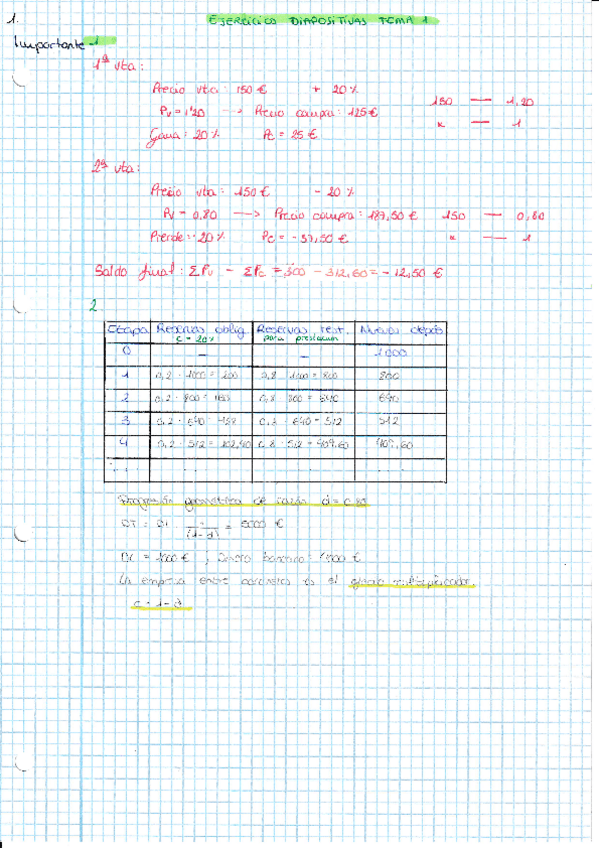 1.
EJERCICIO DIAPOSITIVAS TEMA 1
Importante - 1
1ª vta:
Precio vta: 150 € + 20 %
Pv = 1'20 → Precio compra: 125 € 150 — 1,20
Gana: 20 % Pc = 25 € x — 1
2ª vta:
Precio vta: 150 € - 20 %
Pv = 0,80 → Precio compra: 187,50 € 150 — 0,80
Pierde: 20 % Pc = - 37,50 € x — 1
Saldo final: Σ Pv - Σ Pc = 300 - 312,50 = - 12,50 €
2
Etapa Reservas oblig. Reservas rest. Nuevos depós
c = 20% para préstamos
0 — — 1000
1 0,2 · 1000 = 200 0,8 · 1000 = 800 800
2 0,2 · 800 = 160 0,8 · 800 = 640 640
3 0,2 · 640 = 128 0,8 · 640 = 512 512
4 0,2 · 512 = 102,40 0,8 · 512 = 409,60 409,60
Progresión geométrica de razón d = 0,80
= 5000 €
(1-d)
= 1000 € ; Dinero bancario:
es el efecto multiplicador.
c = 1 - d